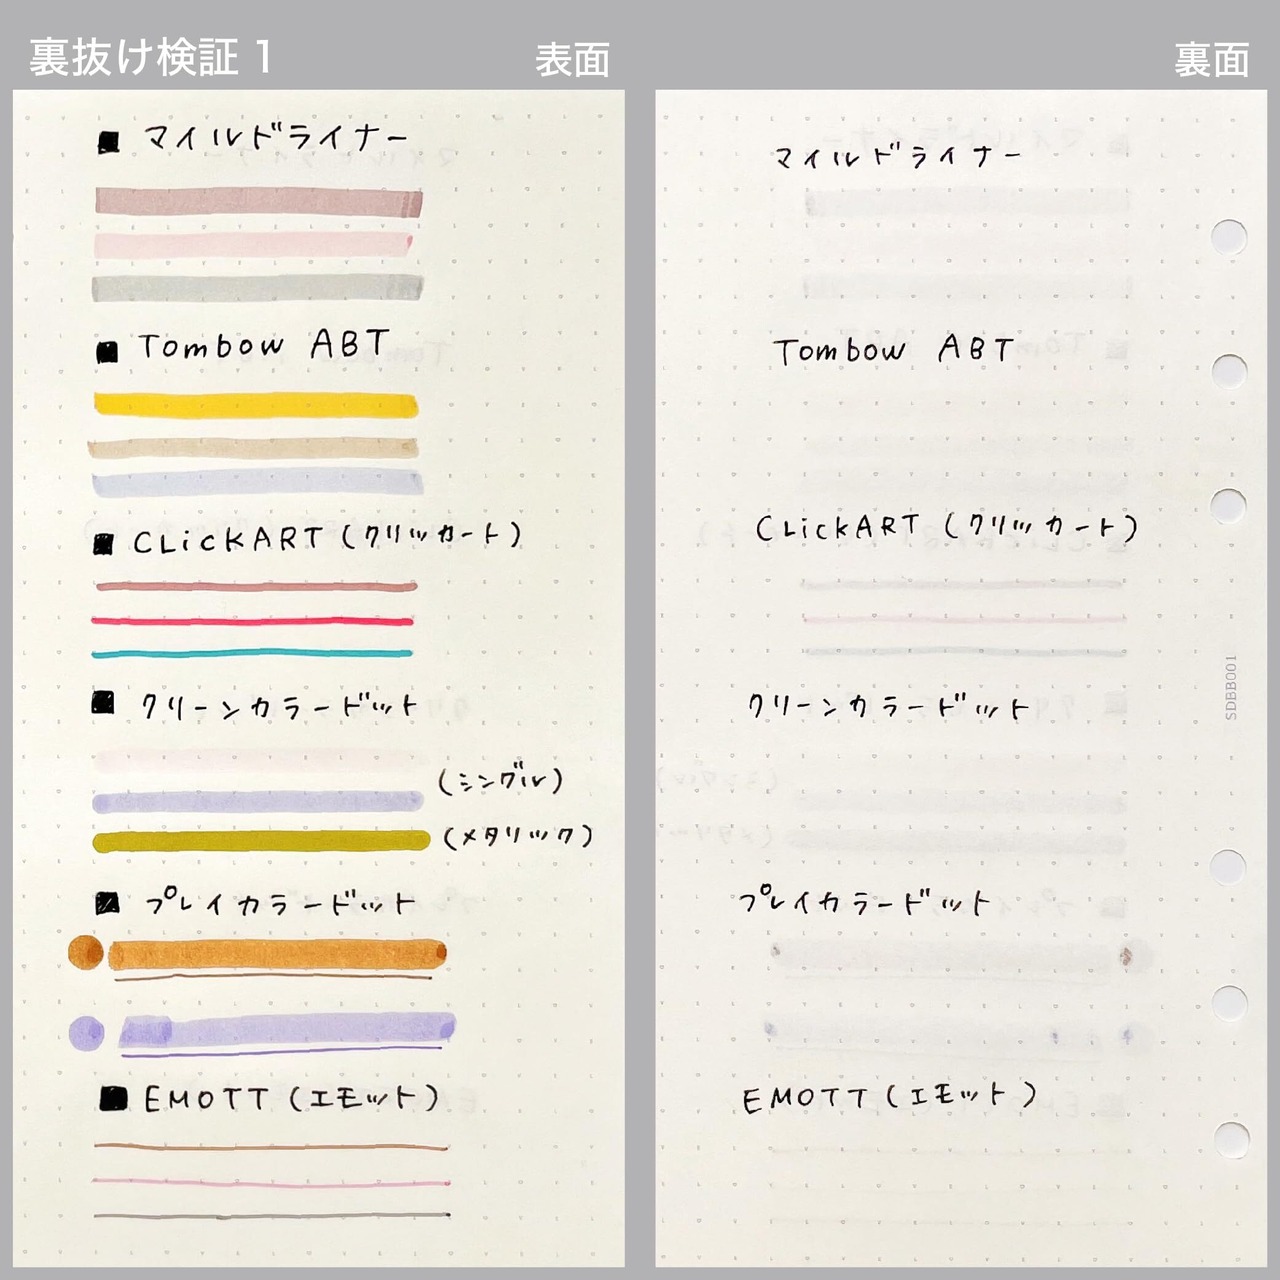 裏抜け検証 1
表面
■ マイルドライナー
■ Tombow ABT
■ CLickART (クリッカート)
■ クリーンカラードット
(シングル)
(メタリック)
■ プレイカラードット
■ EMOTT (エモット)
裏面
マイルドライナー
Tombow ABT
CLickART (クリッカート)
クリーンカラードット
プレイカラードット
EMOTT (エモット)
SDBB001